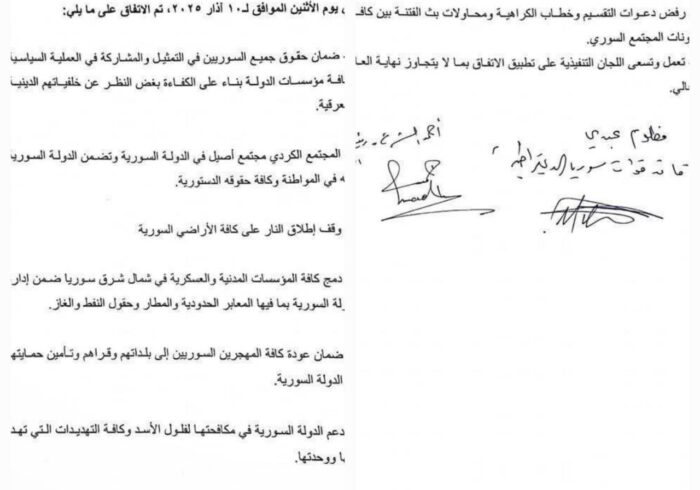 ، يوم الأثنين الموافق لـ١٠ آذار ٢٠٢٥، تم الاتفاق على ما يلي:
ضمان حقوق جميع السوريين في التمثيل والمشاركة في العملية السياسية
افة مؤسسات الدولة بناء على الكفاءة بغض النظر عن خلفياتهم الدينية
عرقية.
المجتمع الكردي مجتمع أصيل في الدولة السورية وتضمن الدولة السورية
ه في المواطنة وكافة حقوقه الدستورية.
وقف إطلاق النار على كافة الأراضي السورية
دمج كافة المؤسسات المدنية والعسكرية في شمال شرق سوريا ضمن إدار
ولة السورية بما فيها المعابر الحدودية والمطار وحقول النفط والغاز.
ضمان عودة كافة المهجرين السوريين إلى بلداتهم وقراهم وتأمين حمايتهم
الدولة السورية.
دعم الدولة السورية في مكافحتها لفلول الأسد وكافة التهديدات التي تهد
ها ووحدتها.
رفض دعوات التقسيم وخطاب الكراهية ومحاولات بث الفتنة بين كاف
ونات المجتمع السوري.
تعمل وتسعى اللجان التنفيذية على تطبيق الاتفاق بما لا يتجاوز نهاية العا
الي.
مظلوم عبدي
قائد قوات سوريا الديمقراطية
أحمد الشرع